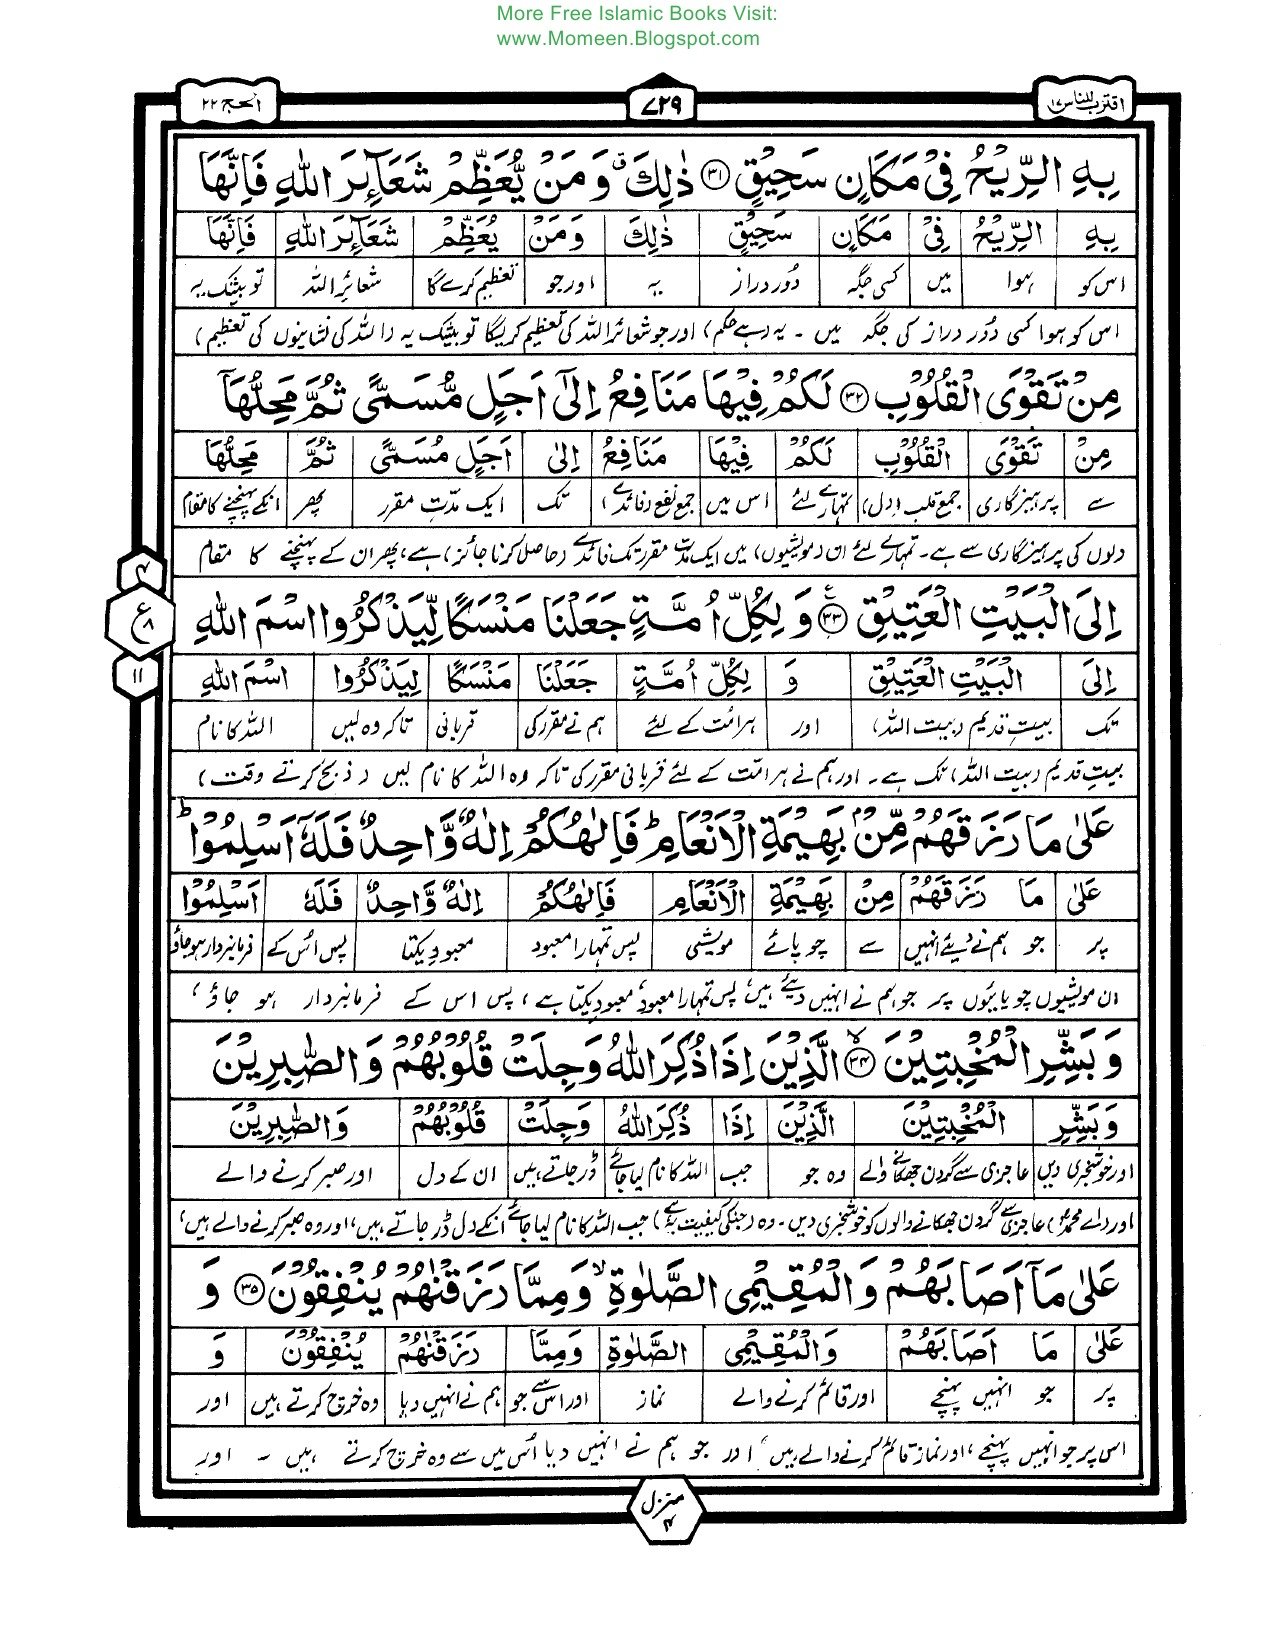 More Free Islamic Books Visit:
www.Momeen.Blogspot.com
اقترب للناس ۱۷
۷۲۹
الحج ۲۲
بِهِ الرِّيْحُ فِيْ مَكَانٍ سَحِيْقٍ ۝۳۱ ذٰلِكَ ۗ وَمَنْ يُّعَظِّمْ شَعَآئِرَ اللّٰهِ فَاِنَّهَا
بِهِ الرِّيْحُ فِيْ مَكَانٍ سَحِيْقٍ ذٰلِكَ وَمَنْ يُعَظِّمْ شَعَآئِرَ اللّٰهِ فَاِنَّهَا
اس کو ہوا میں کسی جگہ دُور دراز یہ اور جو تعظیم کرے گا شعائر اللہ تو بیشک یہ
اس کو ہوا کسی دُور دراز کی جگہ میں ۔ یہ (ہے حکم) اور جو شعائر اللہ کی تعظیم کریگا تو بیشک یہ (اللہ کی نشانیوں کی تعظیم)
مِنْ تَقْوَى الْقُلُوْبِ ۝۳۲ لَكُمْ فِيْهَا مَنَافِعُ اِلٰٓى اَجَلٍ مُّسَمًّى ثُمَّ مَحِلُّهَآ
مِنْ تَقْوَى الْقُلُوْبِ لَكُمْ فِيْهَا مَنَافِعُ اِلٰى اَجَلٍ مُسَمًّى ثُمَّ مَحِلُّهَا
سے پرہیزگاری جمع قلب (دل) تمہارے لئے اس میں جمع نفع (فائدے) تک ایک مدّتِ مقرر پھر انکے پہنچنے کا مقام
دلوں کی پرہیزگاری سے ہے۔ تمہارے لئے ان (مویشیوں) میں ایک مدت مقرر تک فائدے (حاصل کرنا جائز) ہے، پھر ان کے پہنچنے کا مقام
۴
ع ۸
۱۱
اِلَى الْبَيْتِ الْعَتِيْقِ ۝۳۳ وَلِكُلِّ اُمَّةٍ جَعَلْنَا مَنْسَكًا لِّيَذْكُرُوا اسْمَ اللّٰهِ
اِلَى الْبَيْتِ الْعَتِيْقِ وَ لِكُلِّ اُمَّةٍ جَعَلْنَا مَنْسَكًا لِيَذْكُرُوا اسْمَ اللّٰهِ
تک بیتِ قدیم (بیت اللہ) اور ہر امت کے لئے ہم نے مقرر کی قربانی تاکہ وہ لیں اللہ کا نام
بیتِ قدیم (بیت اللہ) تک ہے۔ اور ہم نے ہر امت کے لئے قربانی مقرر کی تاکہ وہ اللہ کا نام لیں (ذبح کرتے وقت)
عَلٰى مَا رَزَقَهُمْ مِّنْۢ بَهِيْمَةِ الْاَنْعَامِ ؕ فَاِلٰهُكُمْ اِلٰهٌ وَّاحِدٌ فَلَهٗٓ اَسْلِمُوْا ؕ
عَلٰى مَا رَزَقَهُمْ مِنْ بَهِيْمَةِ الْاَنْعَامِ فَاِلٰهُكُمْ اِلٰهٌ وَّاحِدٌ فَلَهٗ اَسْلِمُوْا
پر جو ہم نے دیئے انہیں سے چوپائے مویشی پس تمہارا معبود معبودِ یکتا پس اُس کے فرمانبردار ہو جاؤ
ان مویشیوں چوپایوں پر جو ہم نے انہیں دیئے ہیں، پس تمہارا معبود، معبود یکتا ہے، پس اس کے فرمانبردار ہو جاؤ،
وَبَشِّرِ الْمُخْبِتِيْنَ ۝۳۴ الَّذِيْنَ اِذَا ذُكِرَ اللّٰهُ وَجِلَتْ قُلُوْبُهُمْ وَالصّٰبِرِيْنَ
وَبَشِّرِ الْمُخْبِتِيْنَ الَّذِيْنَ اِذَا ذُكِرَ اللّٰهُ وَجِلَتْ قُلُوْبُهُمْ وَالصّٰبِرِيْنَ
اور خوشخبری دیں عاجزی سے گردن جھکانے والے وہ جو جب اللہ کا نام لیا جائے ڈر جاتے ہیں ان کے دل اور صبر کرنے والے
اور (اے محمدؐ) عاجزی سے گردن جھکانے والوں کو خوشخبری دیں۔ وہ (جنکی کیفیت یہ ہے) جب اللہ کا نام لیا جائے انکے دل ڈر جاتے ہیں، اور وہ صبر کرنے والے ہیں،
عَلٰى مَآ اَصَابَهُمْ وَالْمُقِيْمِي الصَّلٰوةِ ۙ وَمِمَّا رَزَقْنٰهُمْ يُنْفِقُوْنَ ۝۳۵ وَ
عَلٰى مَا اَصَابَهُمْ وَالْمُقِيْمِي الصَّلٰوةِ وَمِمَّا رَزَقْنٰهُمْ يُنْفِقُوْنَ وَ
پر جو انہیں پہنچے اور قائم کرنے والے نماز اور اس سے جو ہم نے انہیں دیا وہ خرچ کرتے ہیں اور
اس پر جو انہیں پہنچے، اور نماز قائم کرنے والے ہیں، اور جو ہم نے انہیں دیا اُس میں سے وہ خرچ کرتے ہیں ۔ اور
منزل ۴